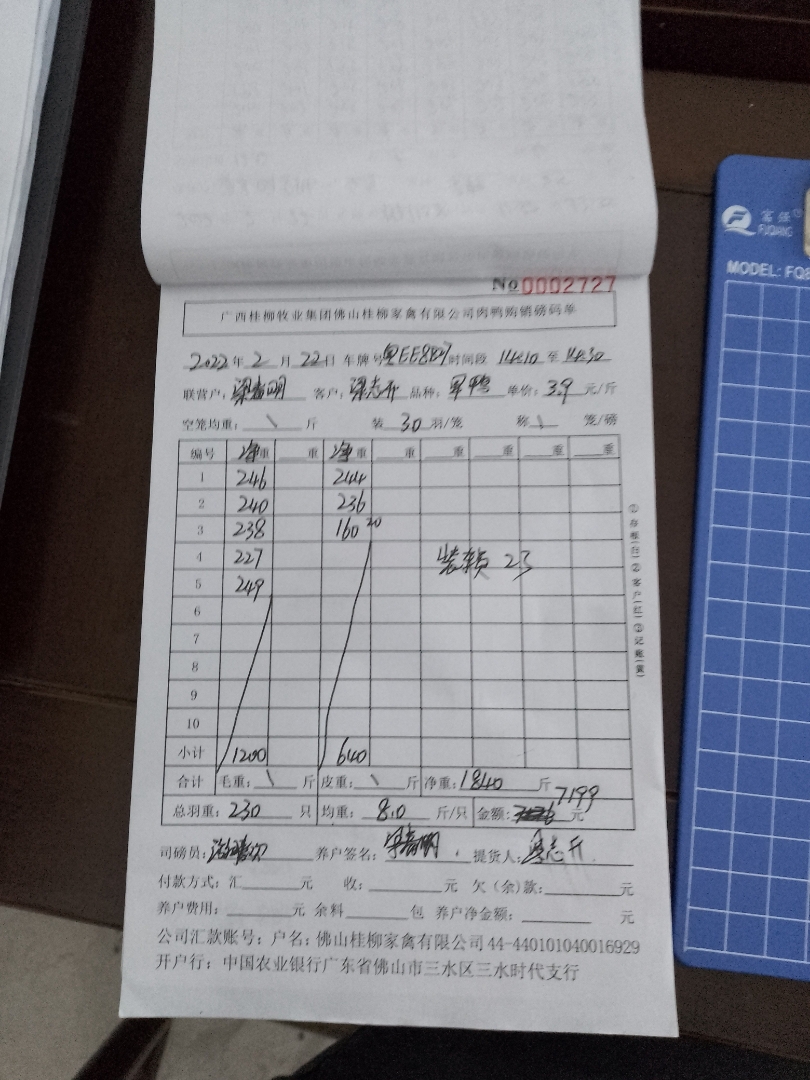 No 0002727
广西桂柳牧业集团佛山桂柳家禽有限公司肉鸭购销磅码单
2022年2月22日 车牌号 时间段 14:10 至 14:30
联营户: 客户: 梁志开 品种: 单价: 3.9 元/斤
空笼均重: \ 斤 装 30 羽/笼 称 \ 笼/磅
编号 净重 重 净重 重 重 重 重 重
1 246 244
2 240 236
3 238 160 20
4 227 装车员 23
5 249
6
7
8
9
10
小计 1200 640
合计 毛重: \ 斤 皮重: \ 斤 净重: 1840 斤
总羽重: 230 只 均重: 8.0 斤/只 金额: 7199 元
司磅员: 养户签名: 提货人: 梁志开
付款方式: 汇 元 收: 元 欠(余)款: 元
养户费用: 元 余料 包 养户净金额: 元
公司汇款账号: 户名: 佛山桂柳家禽有限公司 44-440101040016929
开户行: 中国农业银行广东省佛山市三水区三水时代支行
①存根(白)②客户(红)③记账(黄)
富强
FUQIANG
MODEL: FQ8